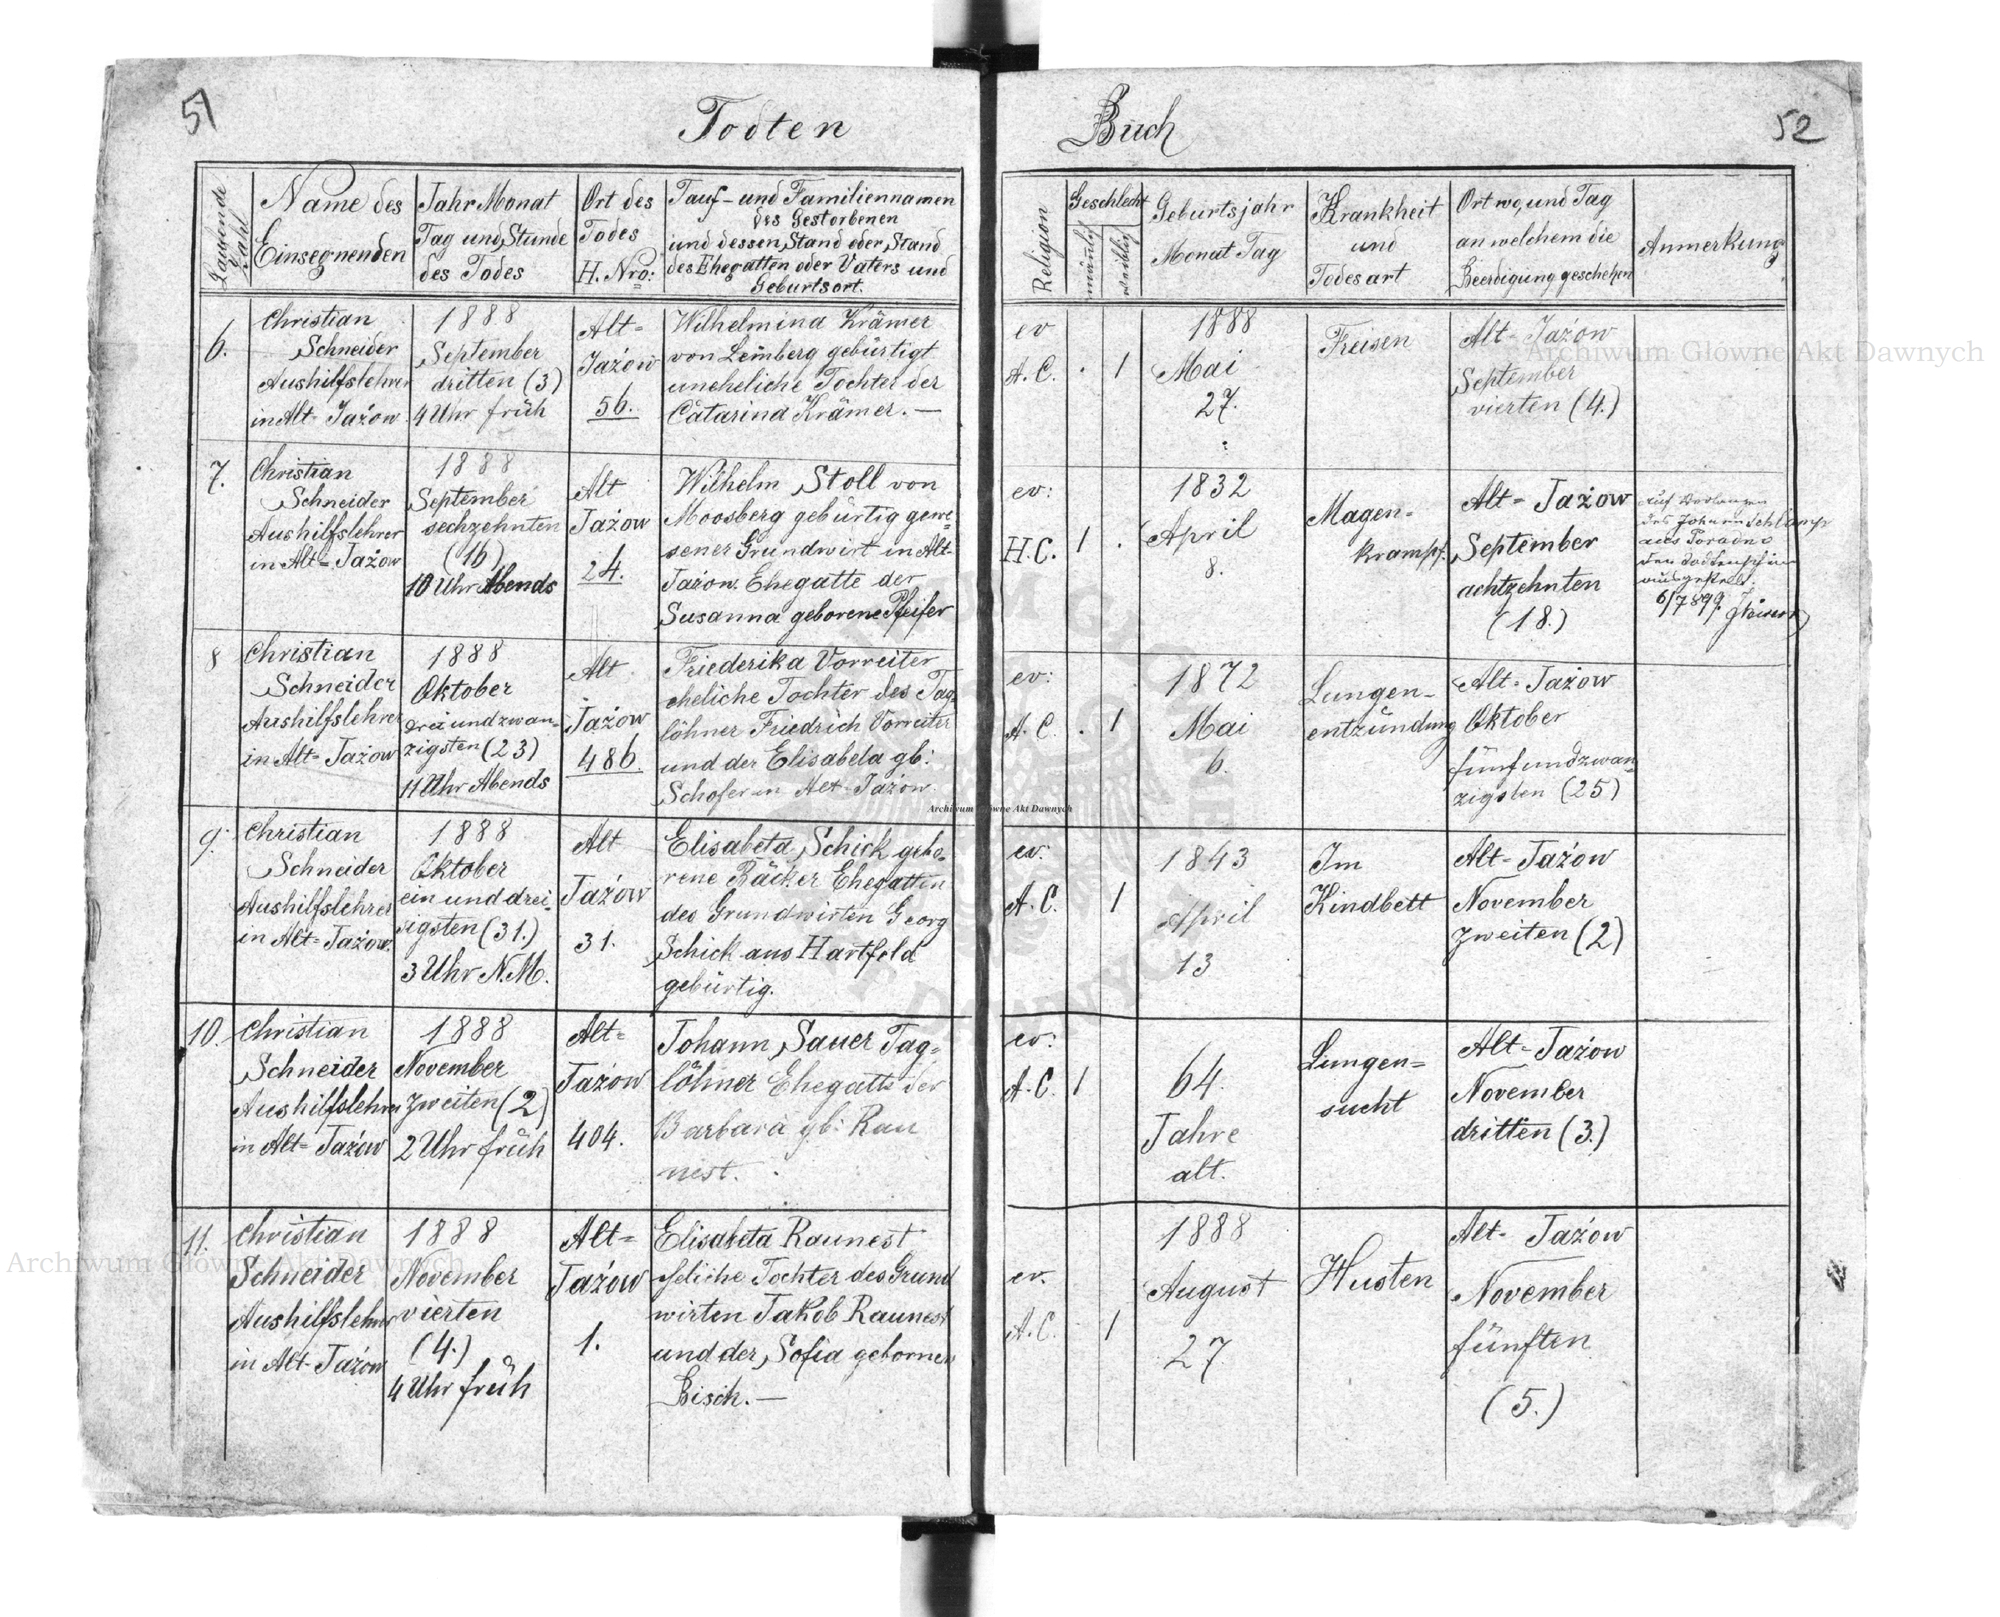 51
Todten
Buch
52
Laufende Zahl
Name des
Einsegnenden
Jahr Monat
Tag und Stunde
des Todes
Ort des
Todes
H. Nro:
Tauf- und Familiennamen
des Gestorbenen
und dessen Stand oder Stand
des Ehegatten oder Vaters und
Geburtsort.
Religion
Geschlecht
männlich
weiblich
Geburtsjahr
Monat Tag
Krankheit
und
Todesart
Ort wo, und Tag
an welchem die
Beerdigung geschehen
Anmerkung
6.
Christian
Schneider
Aushilfslehrer
in Alt-Jażow
1888
September
dritten (3)
4 Uhr früh
Alt=
Jażow
56.
Wilhelmina Krämer
von Lemberg gebürtigt
uneheliche Tochter der
Catarina Krämer. —
ev
A. C.
1
1888
Mai
27.
Freisen
Alt-Jażow
September
vierten (4.)
7.
Christian
Schneider
Aushilfslehrer
in Alt=Jażow
1888
September
sechzehnten
(16)
10 Uhr Abends
Alt
Jażow
24.
Wilhelm Stoll von
Moosberg gebürtig gewe-
sener Grundwirt in Alt-
Jażow. Ehegatte der
Susanna geborene Pfeifer
ev:
H.C.
1
1832
April
8.
Magen-
krampf.
Alt=Jażow
September
achtzehnten
(18.)
auf Verlangen
des Johann Schlamp
aus
den Todtenschein
ausgestellt.
6/7 899.
8
Christian
Schneider
Aushilfslehrer
in Alt=Jażow
1888
Oktober
drei und zwan-
zigsten (23)
11 Uhr Abends
Alt
Jażow
486.
Friederika Vorreiter
eheliche Tochter des Tag-
löhner Friedrich Vorreiter
und der Elisabeta gb:
Schofer in Alt-Jażow.
ev:
A. C.
1
1872
Mai
6.
Lungen-
entzündung
Alt-Jażow
Oktober
fünfundzwan-
zigsten (25)
9.
Christian
Schneider
Aushilfslehrer
in Alt=Jażow.
1888
Oktober
ein und drei-
sigsten (31.)
3 Uhr N.M.
Alt
Jażow
31.
Elisabeta Schick gebo-
rene Bäcker Ehegattin
des Grundwirten Georg
Schick aus Hartfeld
gebürtig.
ev:
A. C.
1
1843
April
13
Im
Kindbett
Alt-Jażow
November
zweiten (2)
10.
Christian
Schneider
Aushilfslehrer
in Alt=Jażow
1888
November
zweiten (2)
2 Uhr früh
Alt=
Jażow
404.
Johann Sauer Tag=
löhner Ehegatte der
Barbara gb: Rau
nest.
ev:
A. C.
1
64.
Jahre
alt.
Lungen=
sucht
Alt-Jażow
November
dritten (3.)
11.
Christian
Schneider
Aushilfslehrer
in Alt-Jażow
1888
November
vierten
(4.)
4 Uhr früh
Alt=
Jażow
1.
Elisabeta Raunest
eheliche Tochter des Grund
wirten Jakob Raunest
und der Sofia gebornen
Bisch. —
ev.
A. C.
1
1888
August
27
Husten
Alt-Jażow
November
fünften
(5.)
Archiwum Główne Akt Dawnych
Archiwum Główne Akt Dawnych
Archiwum Główne Akt Dawnych